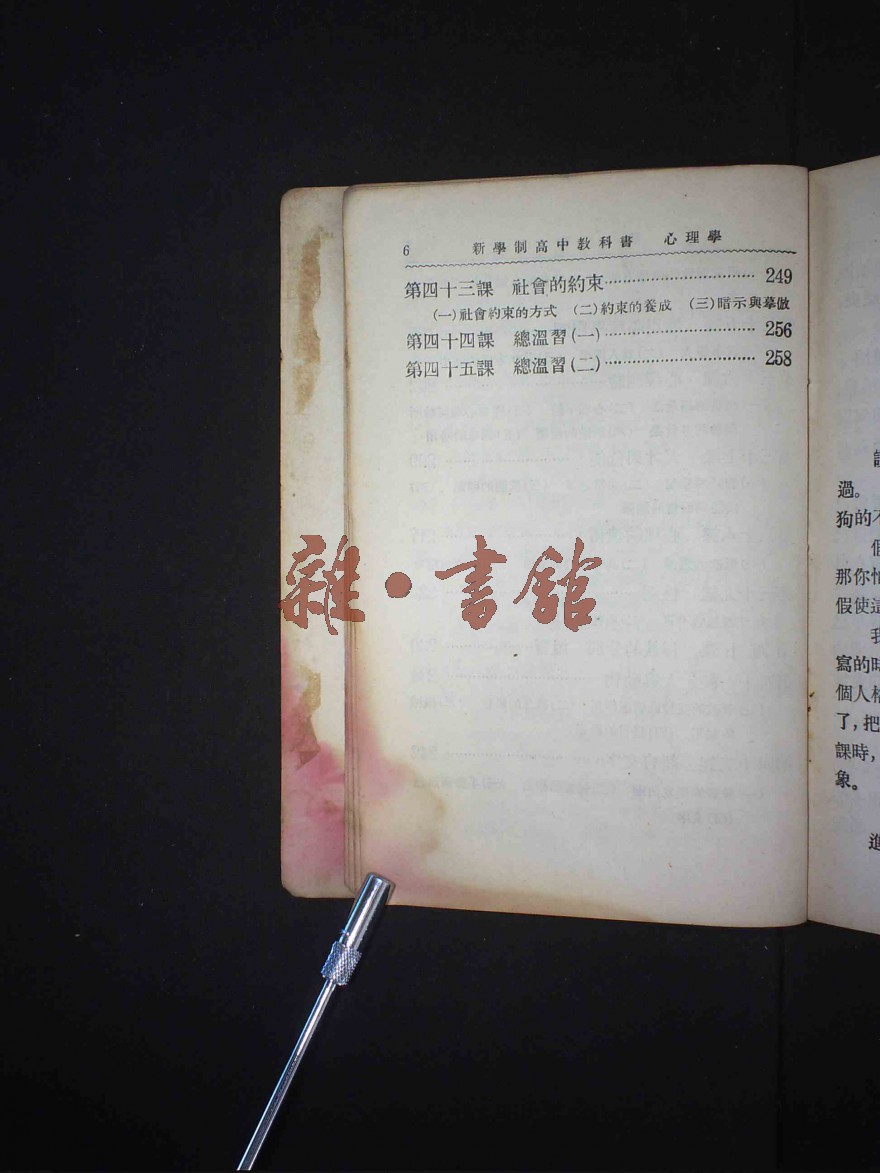 6 新學制高中教科書 心理學
第四十三課 社會的約束…………………………… 249
(一)社會約束的方式 (二)約束的養成 (三)暗示與摹倣
第四十四課 總溫習(一)…………………………… 256
第四十五課 總溫習(二)…………………………… 258
雜·書館
過。
狗的不
那你怕
假使這
寫的時
個人格
了,把
課時,
象。
進